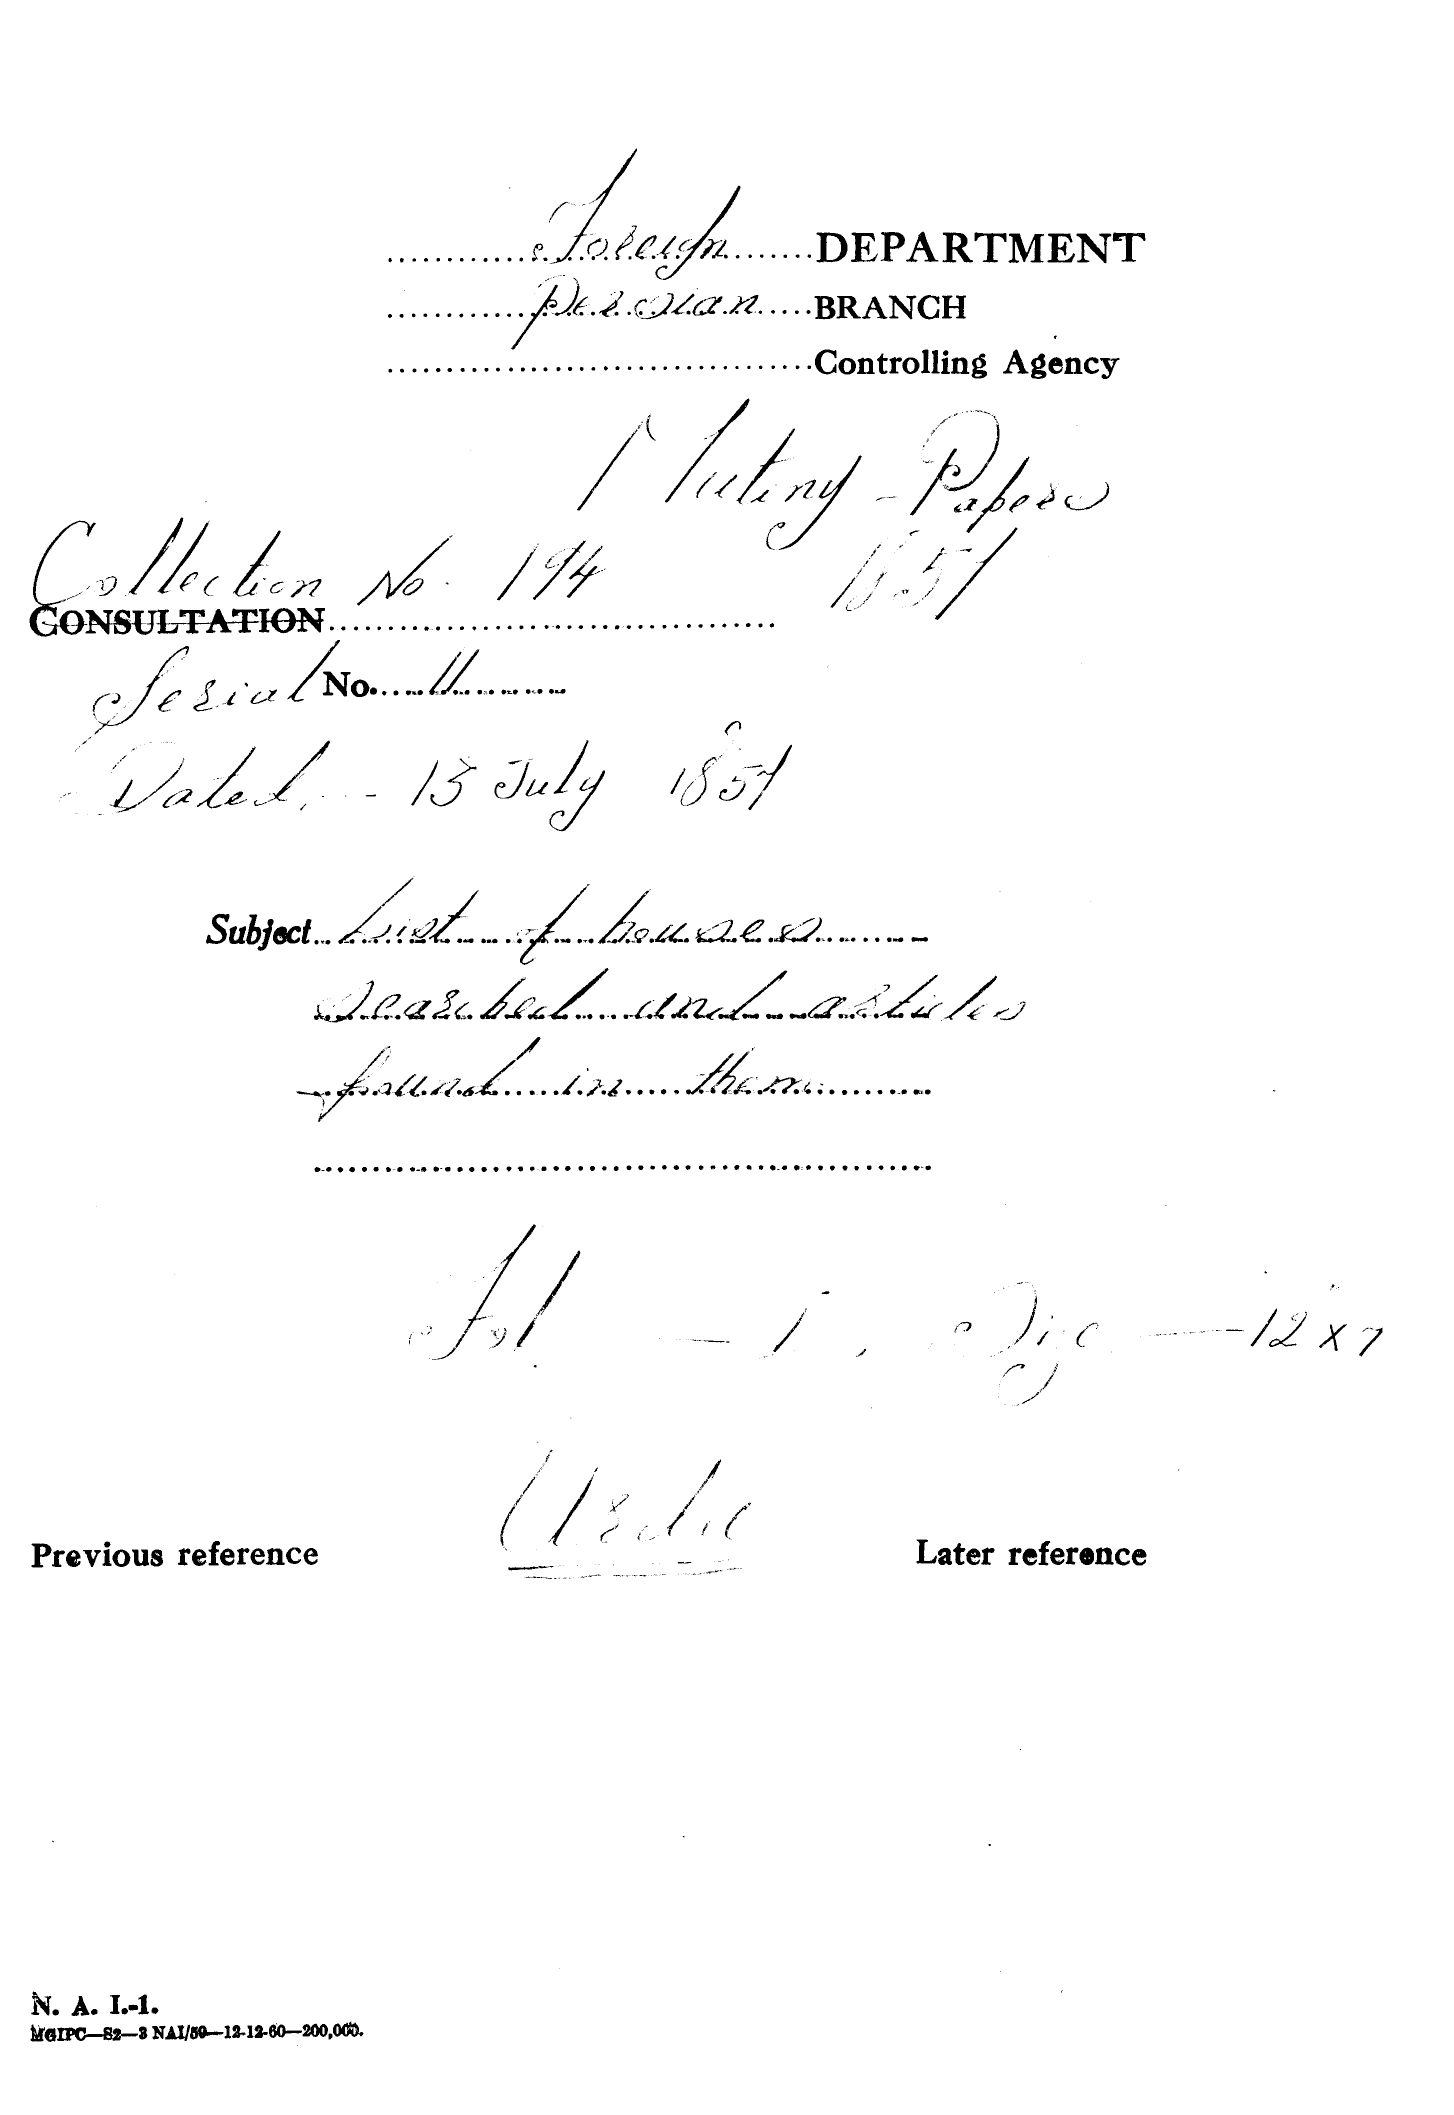 Foreign DEPARTMENT
Persian BRANCH
Controlling Agency
Mutiny - Papers
Collection No. 194 1857
CONSULTATION
Serial No. 11
Dated. - 13 July 1857
Subject List of houses
searched and articles
found in them
Fol — 1, Size — 12 x 7
Urdu
Previous reference Later reference
N. A. I.-1.
MGIPC—S2—3 NAI/59—12-12-60—200,000.